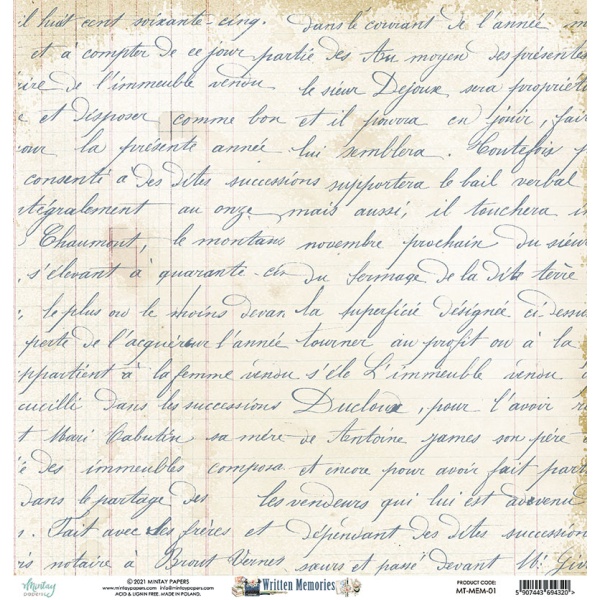 il huit cent soixante-cinq. dans le courant de l'année
et à compter de ce jour partie des Au moyen des présentes
de l'immeuble vendu le sieur Dejoux sera propriétai
et disposer comme bon et il pourra en jouir, fair
our la présente année lui semblera. Toutefois
consenti a des dites successions supportera le bail verbal
ntégralement au onze mais aussi, il touchera
Chaumont, le montant novembre prochain du sieur
s'élevant à quarante-cin du fermage de la dite terre
le plus ou le moins devan la superficie désignée ci-dessu
perte de l'acquéreur l'année tourner au profit ou à la
ppartient à la femme vendu s'éle L'immeuble vendu
cueilli dans les successions Ducloux, pour l'avoir
Mari Cabutin sa mère de Antoine james son père
des immeubles composa et encore pour avoir fait part
dans le partage des les vendeurs qui lui est advenu
. Fait avec les frères et dépendant des dites succession
is notaire à Brout Vernet saurs et passé devant Mr
Mintay papers
© 2021 MINTAY PAPERS
www.mintaypapers.com
ACID & LIGNIN FREE. MADE IN POLAND.
Written Memories
PRODUCT CODE:
MT-MEM-01
5 907443 694320 >